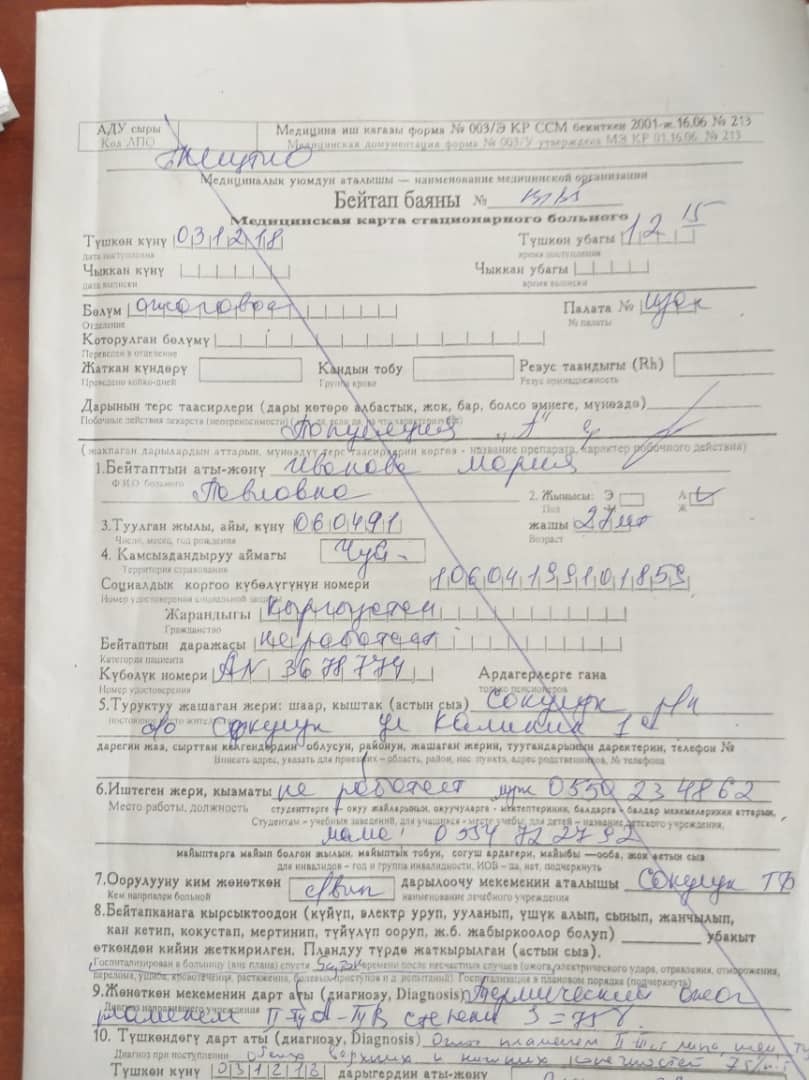 АДУ сыры Медицина иш кагазы форма № 003/Э КР ССМ бекиткен 2001-ж.16.06 № 213
Код ЛПО Медицинская документация форма № 003/У утверждена МЗ КР 01.16.06. № 213
Медициналык уюмдун аталышы — наименование медицинской организации
Бейтап баяны №
Медицинская карта стационарного больного
Түшкөн күнү 031218 Түшкөн убагы 12 15
дата поступления время поступления
Чыккан күнү Чыккан убагы
дата выписки время выписки
Бөлүм ожоговое Палата №
Отделение № палаты
Которулган бөлүмү
Переведен в отделение
Жаткан күндөрү Кандын тобу Резус таандыгы (Rh)
Проведено койко-дней Группа крови Резус принадлежность
Дарынын терс таасирлери (дары көтөрө албастык, жок, бар, болсо эмнеге, мүнөздө)
Побочные действия лекарств (непереносимости)
Популяция "А"
(жакпаган дарылардын аттарын, мүнөздүү терс таасирлерин көргөз - название препарата, характер побочного действия)
1.Бейтаптын аты-жөнү Иванова Мария
Ф.И.О. больного Павловна 2. Жынысы: Э А
Пол Ж
3.Туулган жылы, айы, күнү 060491 жашы 27 лет
Число, месяц, год рождения Возраст
4. Камсыздандыруу аймагы Чуй-
Территория страхования
Социалдык коргоо күбөлүгүнүн номери 10604199101859
Номер удостоверения социальной защиты
Жарандыгы Кыргызстан
Гражданство
Бейтаптын даражасы не работает
Категория пациента
Күбөлүк номери AN 3678774 Ардагерлерге гана
Номер удостоверения только пенсионеров
5.Туруктуу жашаган жери: шаар, кыштак (астын сыз) Сокулук р-н
Сокулук ул Калинин 1а
дарегин жаз, сырттан келгендердин облусун, районун, жашаган жерин, туугандарынын даректерин, телефон №
Вписать адрес, указать для приезжих - область, район, нас. пункта, адрес родственников, № телефона
6.Иштеген жери, кызматы не работает муж 0550 234862
Место работы, должность студенттерге - окуу жайларынын, окуучуларга - мектептеринин, балдарга - балдар мекемелеринин аттарын,
Студентам - учебных заведений, для учащихся - место учебы, для детей - название детского учреждения,
мама: 0554 722792
майыптарга майып болгон жылын, майыптык тобун, согуш ардагери, майыбы —ооба, жок астын сыз
для инвалидов - год и группа инвалидности, ИОВ - да, нет, подчеркнуть
7.Оорулууну ким жөнөткөн дарылоочу мекеменин аталышы Сокулук ТБ
Кем направлен больной наименование лечебного учреждения
8.Бейтапканага кырсыктоодон (күйүп, электр уруп, ууланып, үшүк алып, сынып, жанчылып,
кан кетип, кокустап, мертинип, түйүлүп ооруп, ж.б. жабыркоолор болуп) убакыт
өткөндөн кийин жеткирилген. Пландуу түрдө жаткырылган (астын сыз).
Госпитализирован в больницу (вне плана) спустя времени после несчастных случаев (ожога, электрического удара, отравления, отморожения,
падения, ушиба, кровотечения, растяжения, болевых приступов и д испытаний) Госпитализация в плановом порядке (подчеркнуть)
9.Жөнөткөн мекеменин дарт аты (диагнозу, Diagnosis) Термический ожог
Диагноз направившего учреждения пламенем II-IIIA-IIIB степени S=75%.
10. Түшкөндөгү дарт аты (диагнозу, Diagnosis) Ожог пламенем II-III ст лица, шеи,
Диагноз при поступлении обеих верхних и нижних конечностей 75%
Түшкөн күнү 031218 дарыгердин аты-жөнү